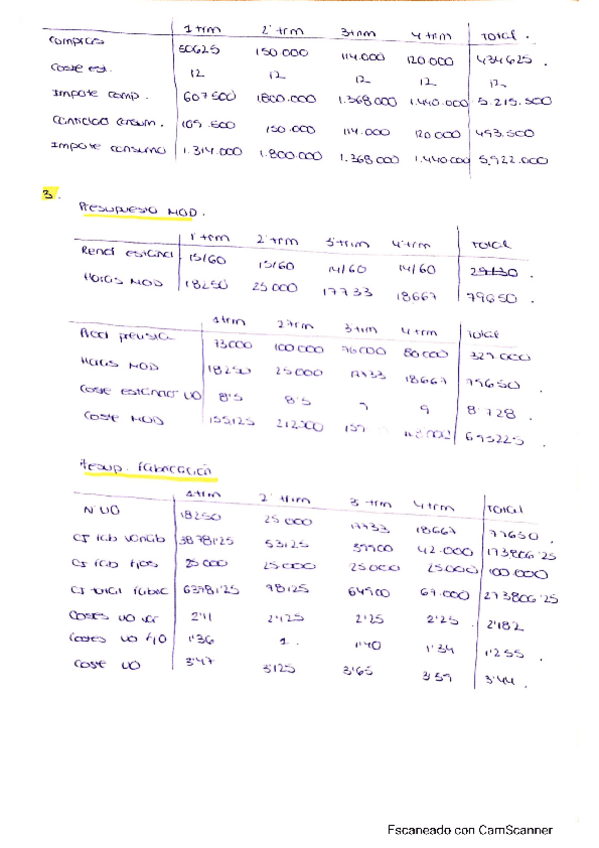 1 trm 2º trm 3 trm 4 trm Total.
Compras 50625 150.000 114.000 120 000 434625.
Coste est. 12 12 12 12 12
Importe comp. 607500 1800.000 1.368000 1.440.000 5.215.500
Cantidad consum. 109.500 150.000 114.000 120 000 493.500
Importe consumo 1.314.000 1.800.000 1.368.000 1.440.000 5,922.000
3.
Presupuesto MOD.
1º trm 2º trm 3º trim 4º trm Total
Rend estánd 15/60 15/60 14/60 14/60
Horas MOD 18250 25 000 17733 18667 79650.
1 trm 2 trm 3 trm 4 trm Total
Prod previsia 73000 100000 76000 80000 329000
Horas MOD 18250 25000 17733 18667 79650.
Coste estándar UO 8'5 8'5 9 9 8'728.
Coste MOD 155125 695225.
Presup. fabricación
1 trm 2º trim 3 trm 4 trm Total
N UO 18250 25 000 17733 18667
CI fab variab 38781'25 53125 39900 42.000 173806'25
CI fab fijos 25000 25000 25000 25000 100.000
CI total fabric 63781'25 78125 64900 67.000 273806'25
Costes UO var 2'125 2'25 2'25 2'182
Costes UO fijo 1'36 1. 1'40 1'34 1'255.
Coste UO 3'47 3'125 3'65 3'59 3'44.
Escaneado con CamScanner